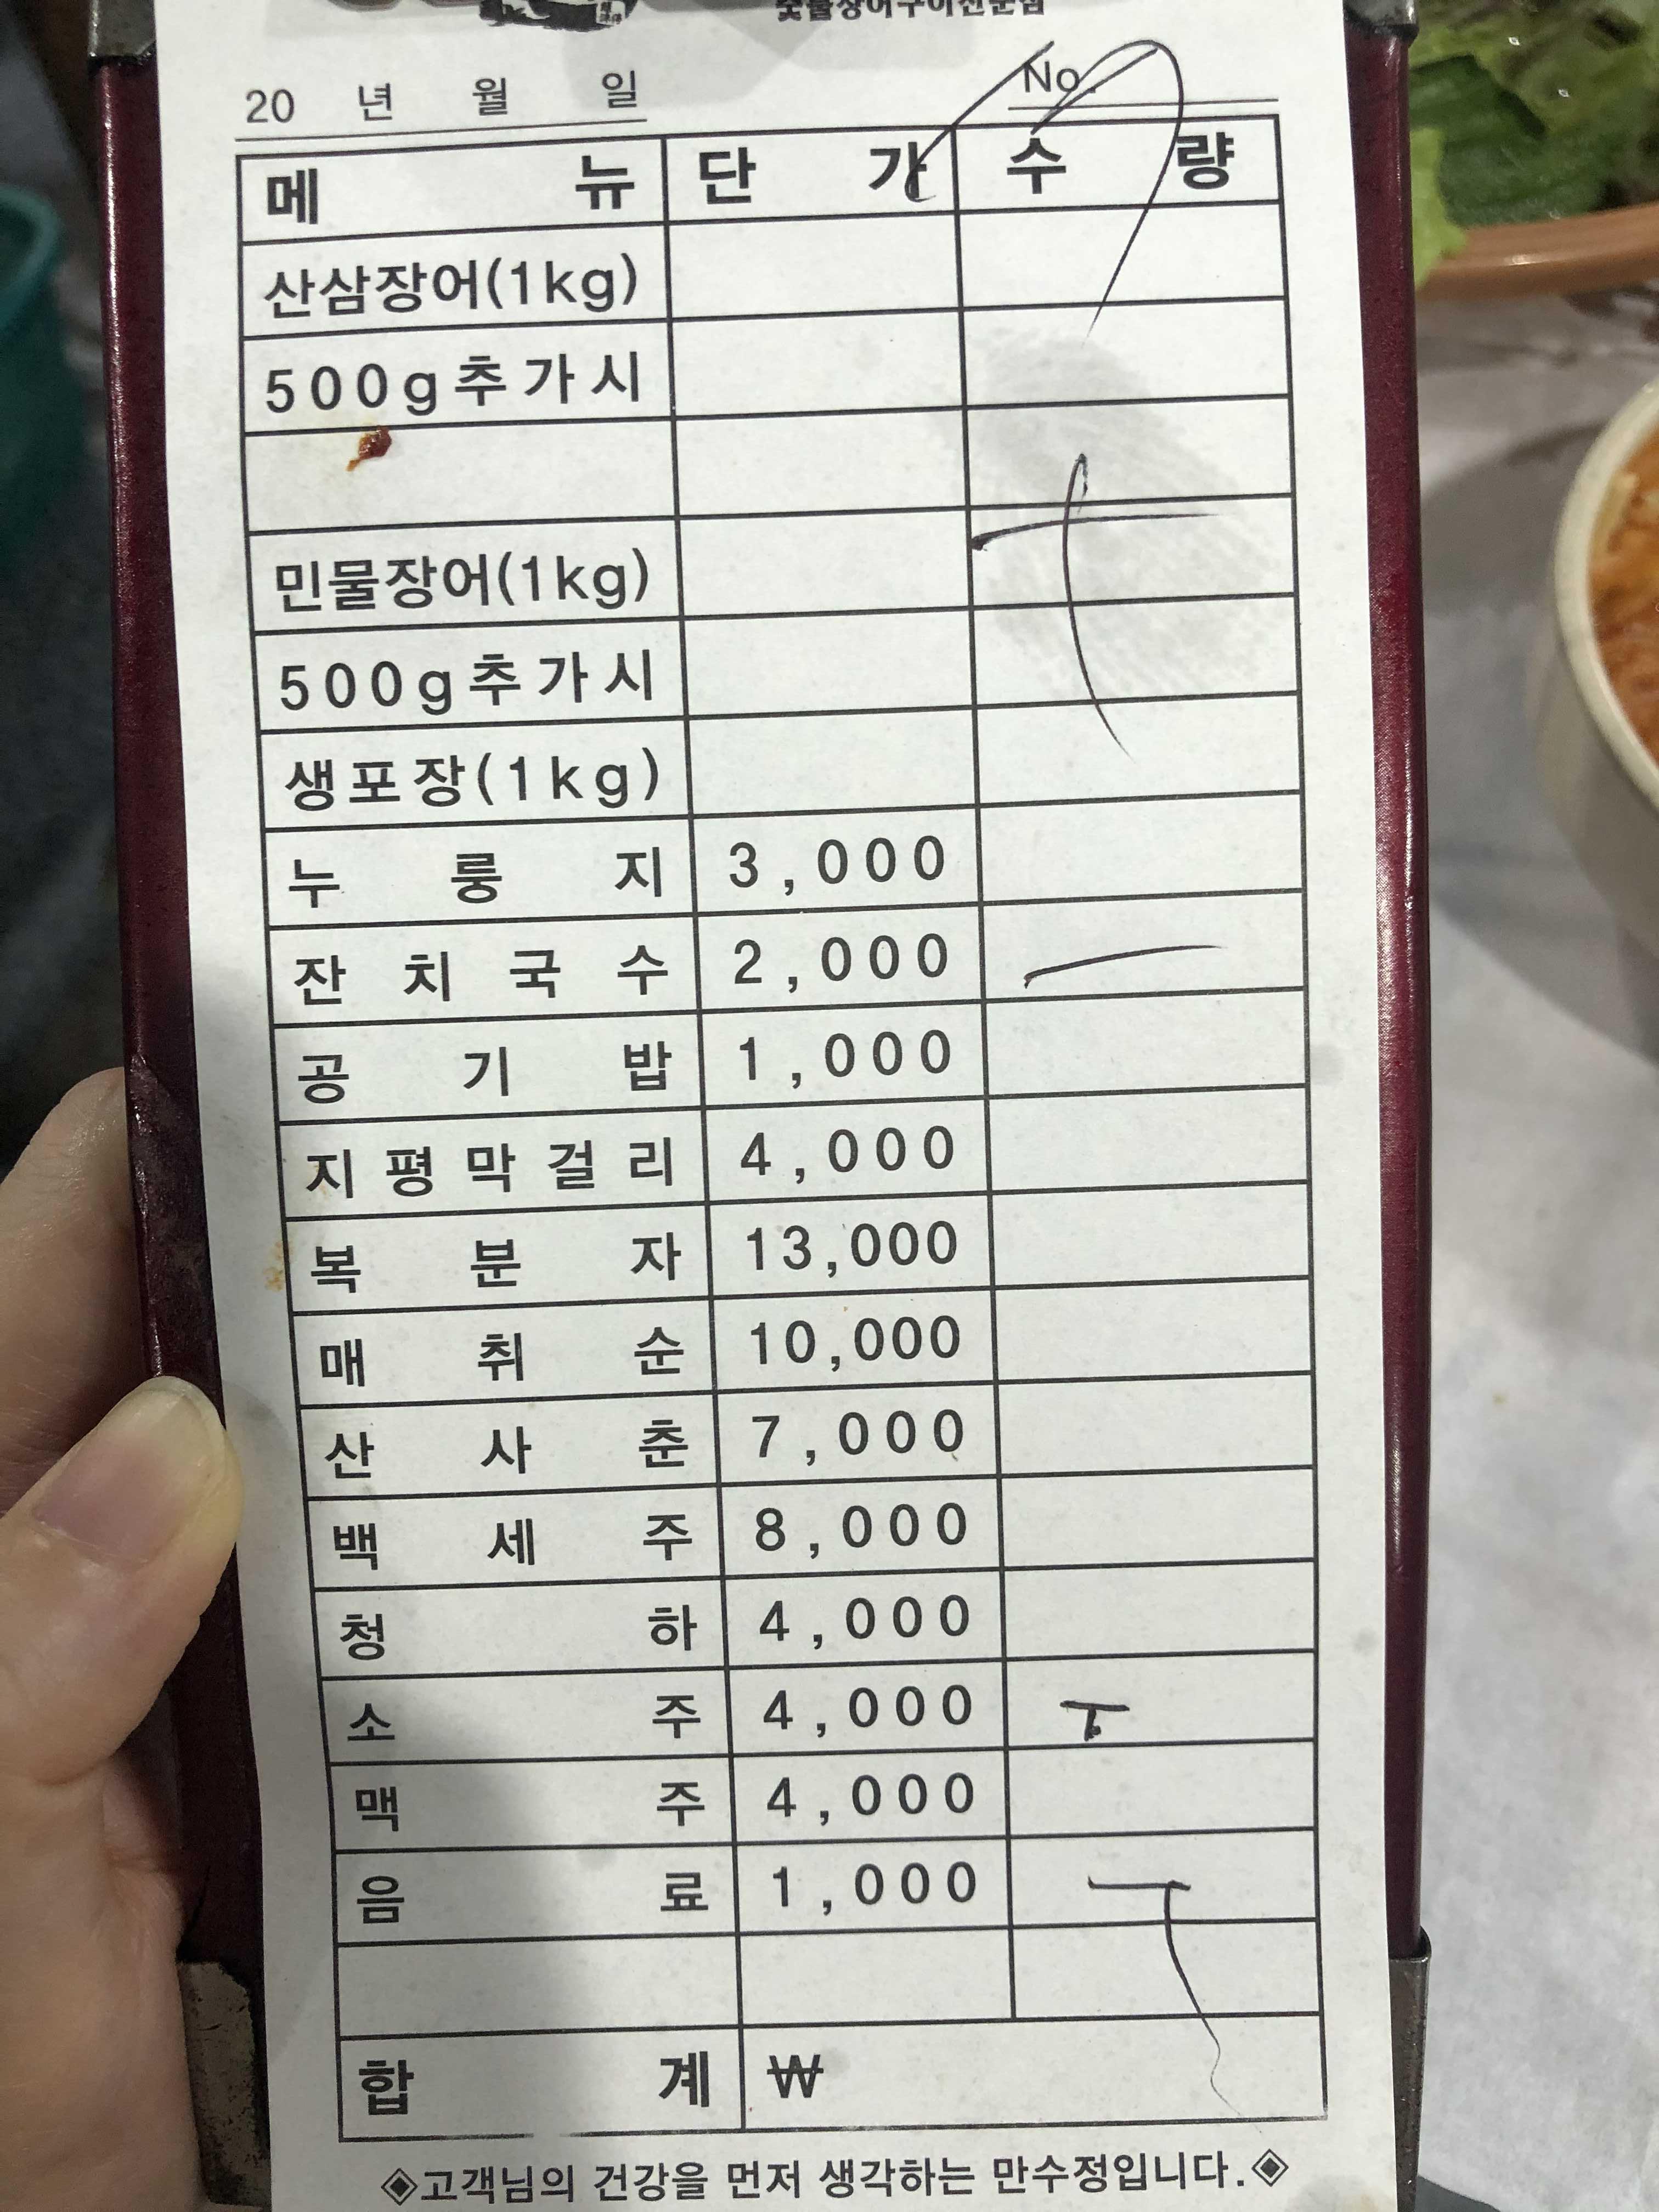 숯불장어구이전문점
20 년 월 일 No.
메뉴 단가 수량
산삼장어(1kg)
500g추가시
민물장어(1kg)
500g추가시
생포장(1kg)
누룽지 3,000
잔치국수 2,000
공기밥 1,000
지평막걸리 4,000
복분자 13,000
매취순 10,000
산사춘 7,000
백세주 8,000
청하 4,000
소주 4,000
맥주 4,000
음료 1,000
합계 ₩
◈고객님의 건강을 먼저 생각하는 만수정입니다.◈